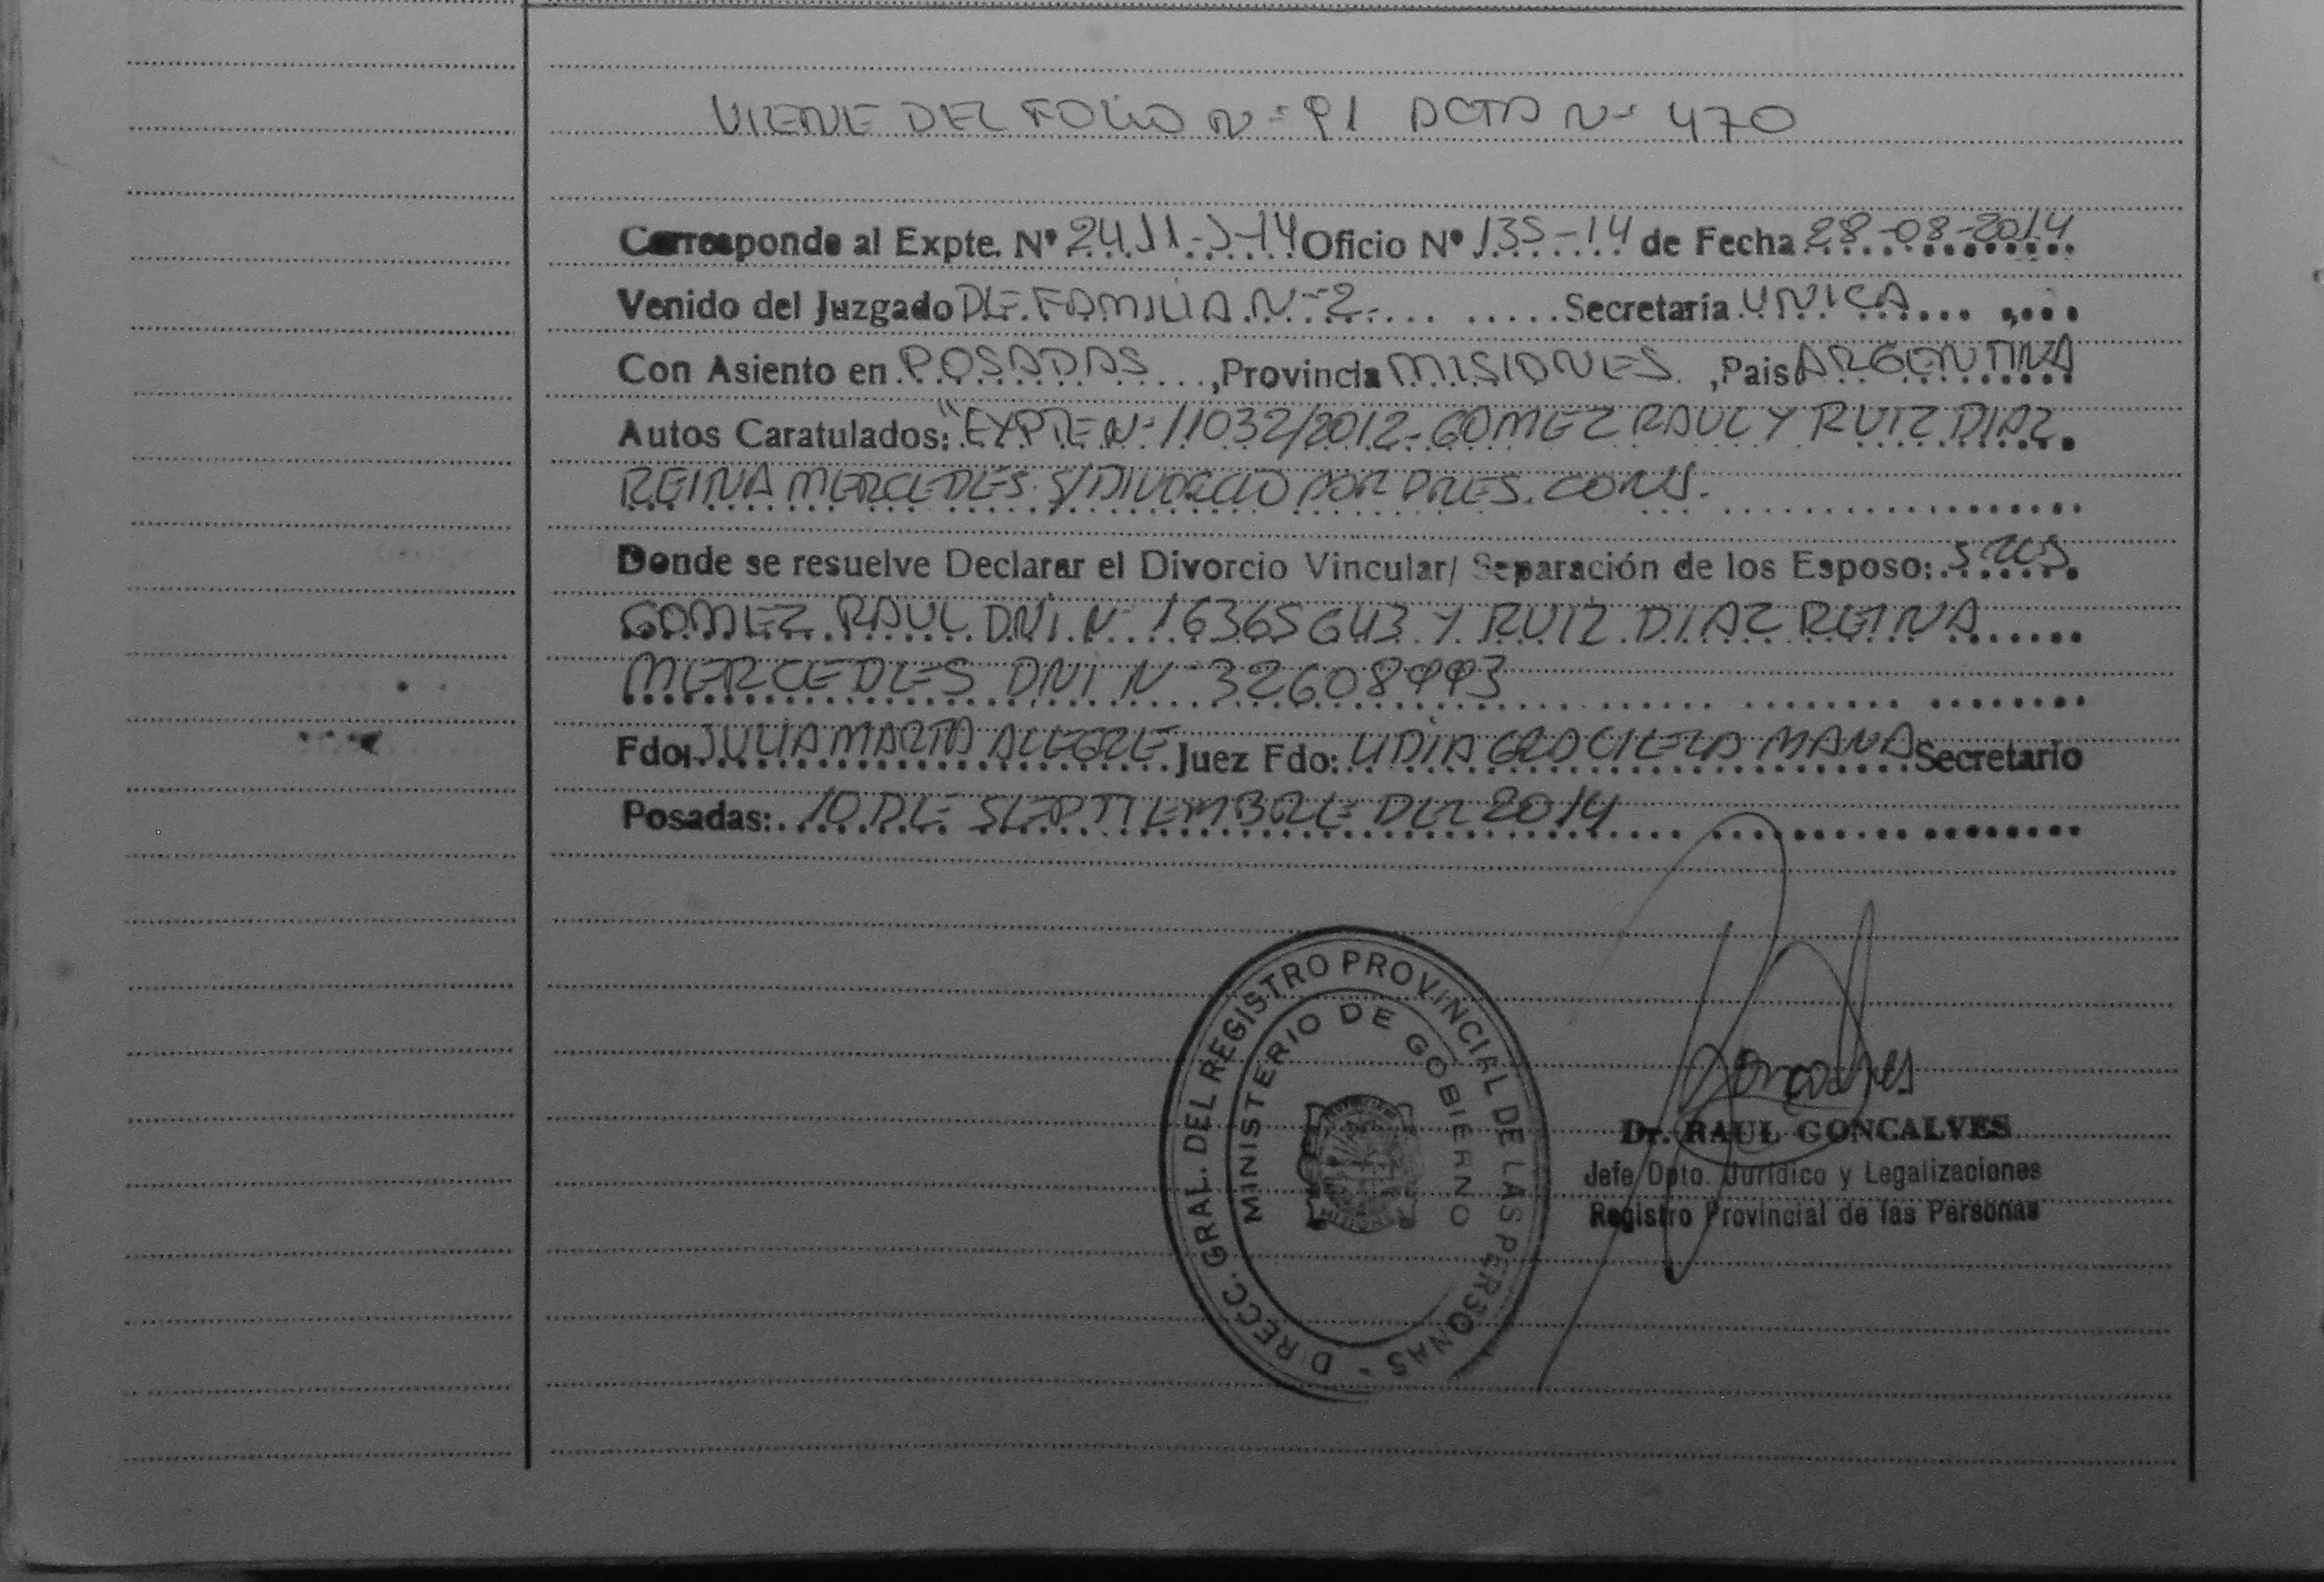 VIENE DEL FOLIO N-91 ACTA N- 470
Corresponde al Expte. Nº 2411-J-14 Oficio Nº 135-14 de Fecha 28-08-2014
Venido del Juzgado DE FAMILIA N-2- Secretaría UNICA
Con Asiento en POSADAS, Provincia MISIONES, Pais ARGENTINA
Autos Caratulados: "EXPTE N-11032/2012-GOMEZ RAUL Y RUIZ DIAZ
REINA MERCEDES S/DIVORCIO POR PRES. CONJ.
Donde se resuelve Declarar el Divorcio Vincular/ Separación de los Esposo: SRES
GOMEZ RAUL DNI N-16365643 Y RUIZ DIAZ REINA
MERCEDES DNI N-32608993
Fdo: JULIA MARTA ALEGRE Juez Fdo: LIDIA GRACIELA MANA Secretario
Posadas: 10 DE SEPTIEMBRE DEL 2014
DIRECC. GRAL. DEL REGISTRO PROVINCIAL DE LAS PERSONAS -
MINISTERIO DE GOBIERNO
MISIONES
Goncalves
Dr. RAUL GONCALVES
Jefe Dpto. Jurídico y Legalizaciones
Registro Provincial de las Personas